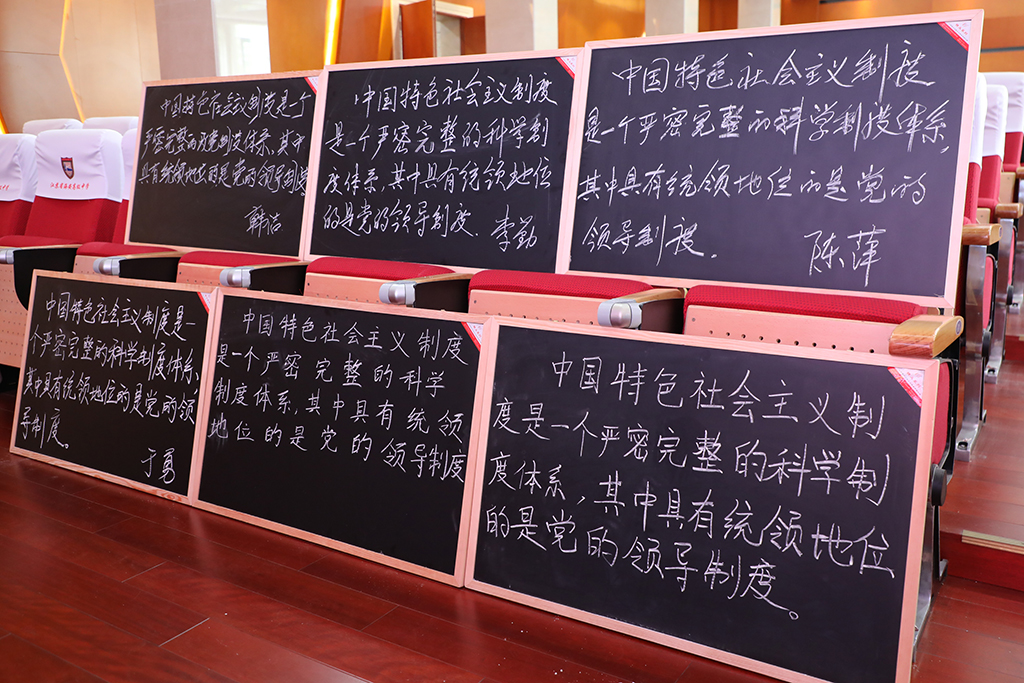 中国特色社会主义制度是一个
严密完整的科学制度体系,其中
具有统领地位的是党的领导制度
韩洁
中国特色社会主义制度
是一个严密完整的科学制
度体系,其中具有统领地位
的是党的领导制度.李勤
中国特色社会主义制度
是一个严密完整的科学制度体系,
其中具有统领地位的是党的
领导制度.
陈萍
中国特色社会主义制度是一
个严密完整的科学制度体系,
其中具有统领地位的是党的领
导制度。
于勇
中国特色社会主义制度
是一个严密完整的科学
制度体系,其中具有统领
地位的是党的领导制度
中国特色社会主义制
度是一个严密完整的科学制
度体系,其中具有统领地位
的是党的领导制度。